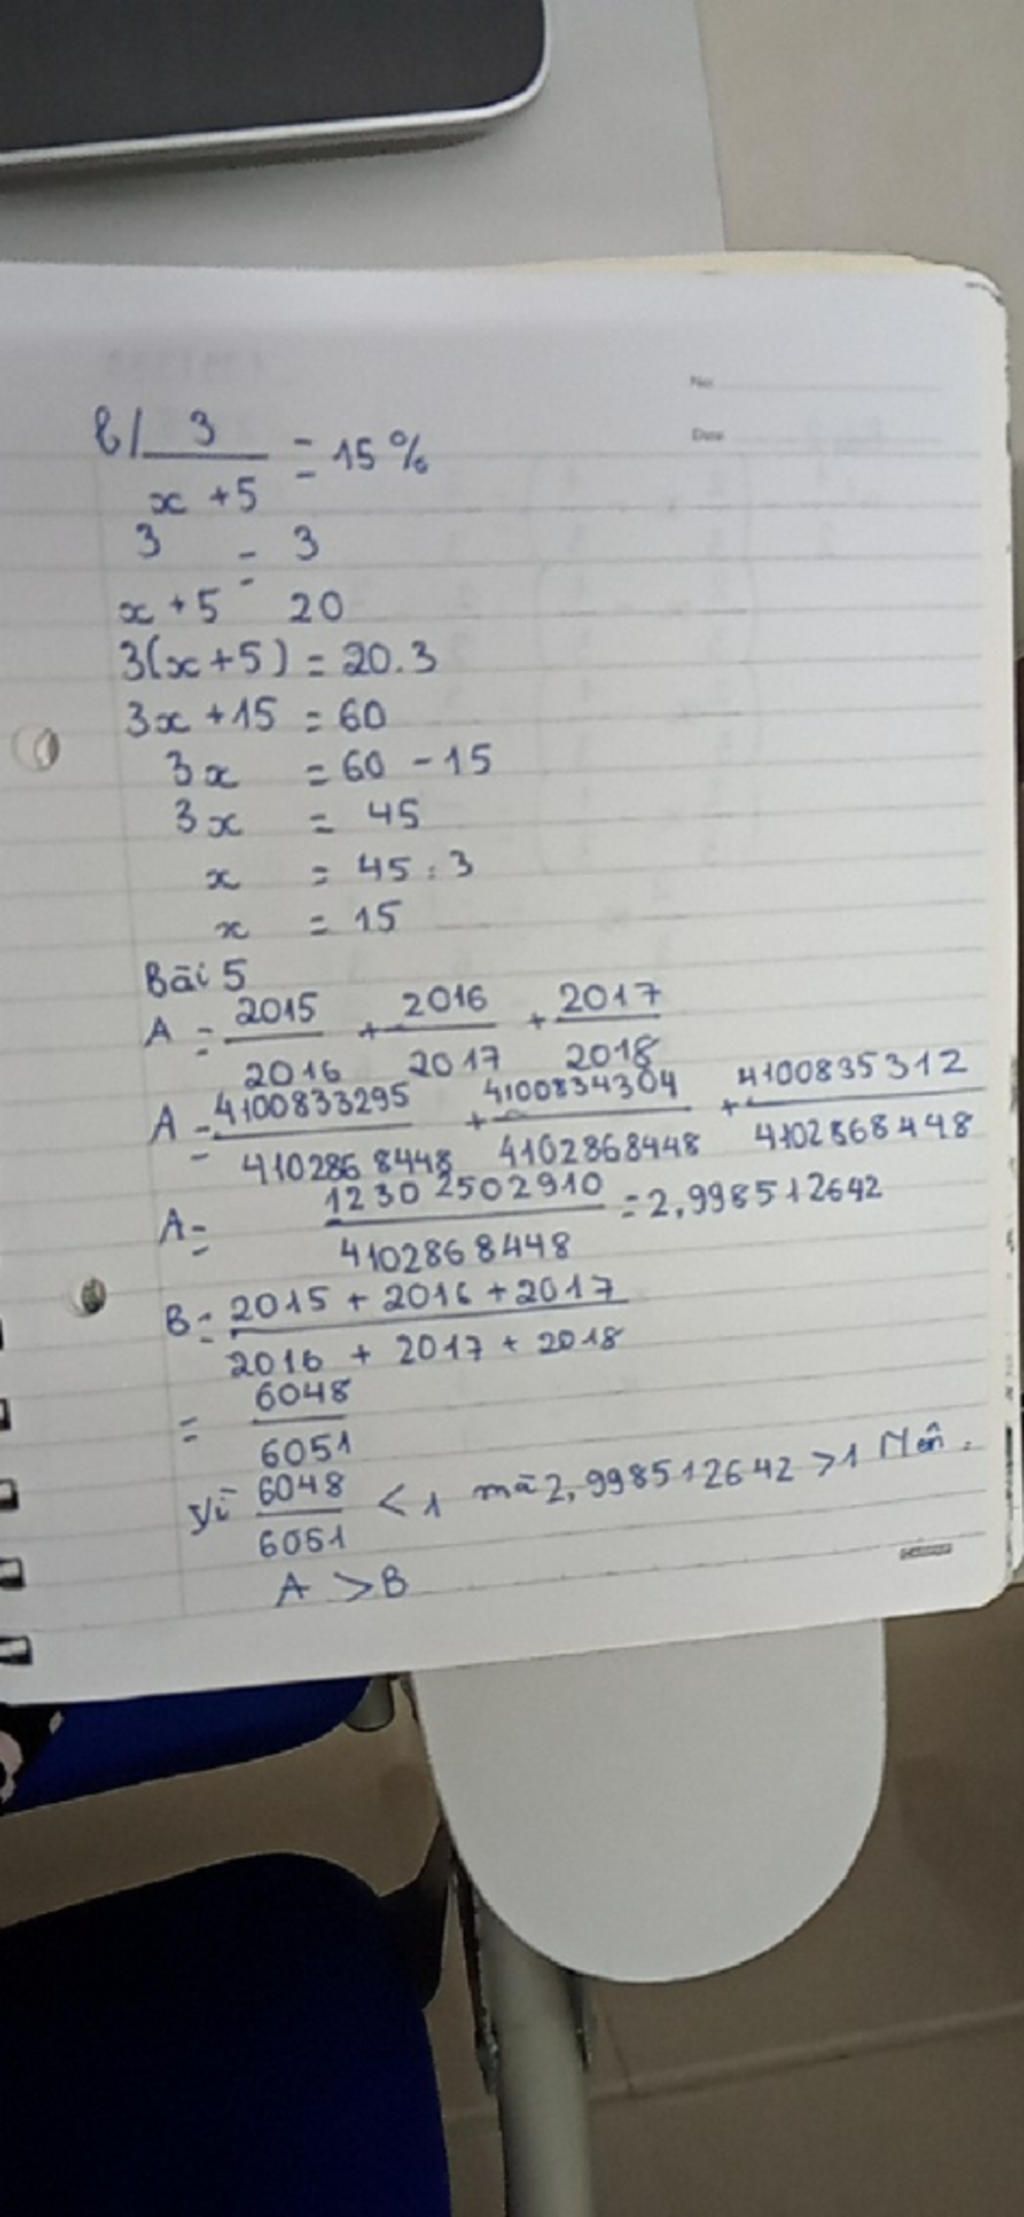 No
Date
b/ 3/(x+5) = 15%
3/(x+5) = 3/20
3(x+5) = 20.3
3x+15 = 60
3x = 60 - 15
3x = 45
x = 45 : 3
x = 15
Bài 5
A = 2015/2016 + 2016/2017 + 2017/2018
A = 4100833295/4102868448 + 4100834304/4102868448 + 4100835312/4102868448
A = 12302502910/4102868448 = 2,998512642
B = (2015 + 2016 + 2017)/(2016 + 2017 + 2018)
= 6048/6051
Vì 6048/6051 < 1 mà 2,998512642 > 1 Nên :
A > B
Campus